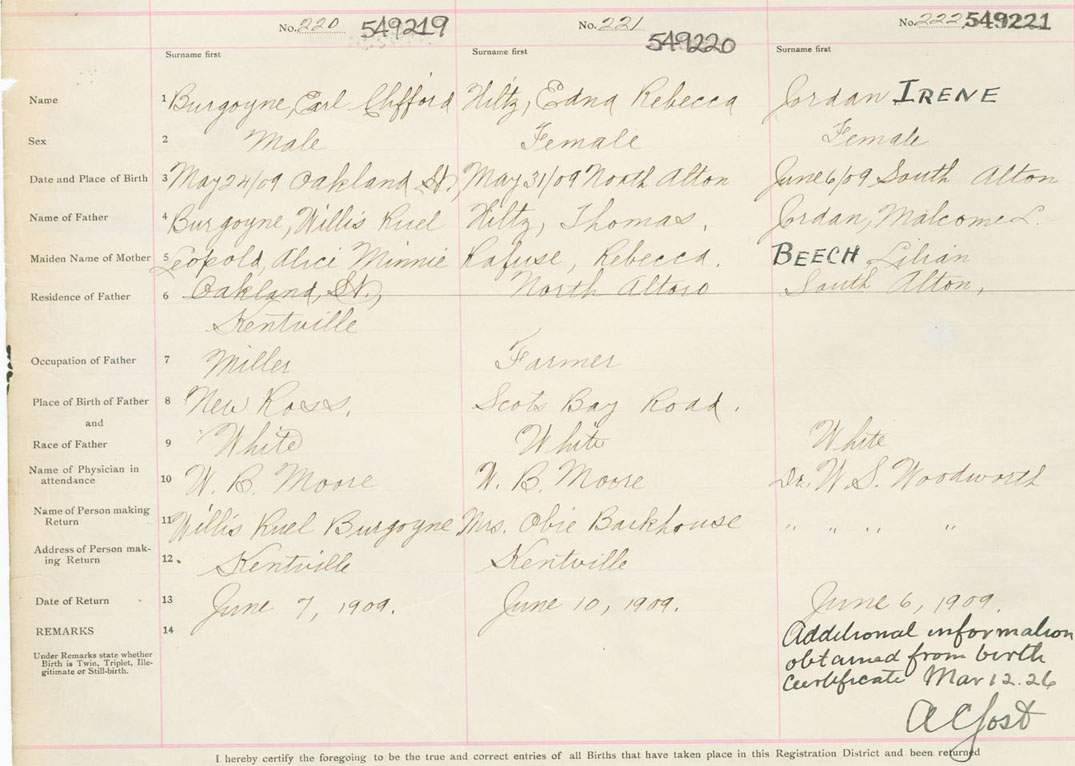 No. 220 549219 No. 221 549220 No. 222 549221
Surname first Surname first Surname first
Name 1 Burgoyne, Earl Clifford Hiltz, Edna Rebecca Jordan IRENE
Sex 2 Male Female Female
Date and Place of Birth 3 May 24/09 Oakland St., May 31/09 North Alton June 6/09 South Alton
Name of Father 4 Burgoyne, Willis Ruel Hiltz, Thomas. Jordan, Malcome L.
Maiden Name of Mother 5 Leopold, Alice Minnie Rafuse, Rebecca. BEECH Lilian
Residence of Father 6 Oakland, St., North Alton South Alton,
Kentville
Occupation of Father 7 Miller Farmer
Place of Birth of Father 8 New Ross. Scots Bay Road.
and
Race of Father 9 White White White
Name of Physician in
attendance 10 W. B. Moore W. B. Moore Dr. W. S. Woodworth
Name of Person making
Return 11 Willis Ruel Burgoyne Mrs. Obie Backhouse " " " "
Address of Person mak-
ing Return 12. Kentville Kentville
Date of Return 13 June 7, 1909. June 10, 1909. June 6, 1909.
REMARKS 14 Additional information
Under Remarks state whether
Birth is Twin, Triplet, Ille-
gitimate or Still-birth.
obtained from birth
certificate Mar 12. 26
A C Jost
I hereby certify the foregoing to be the true and correct entries of all Births that have taken place in this Registration District and been returned